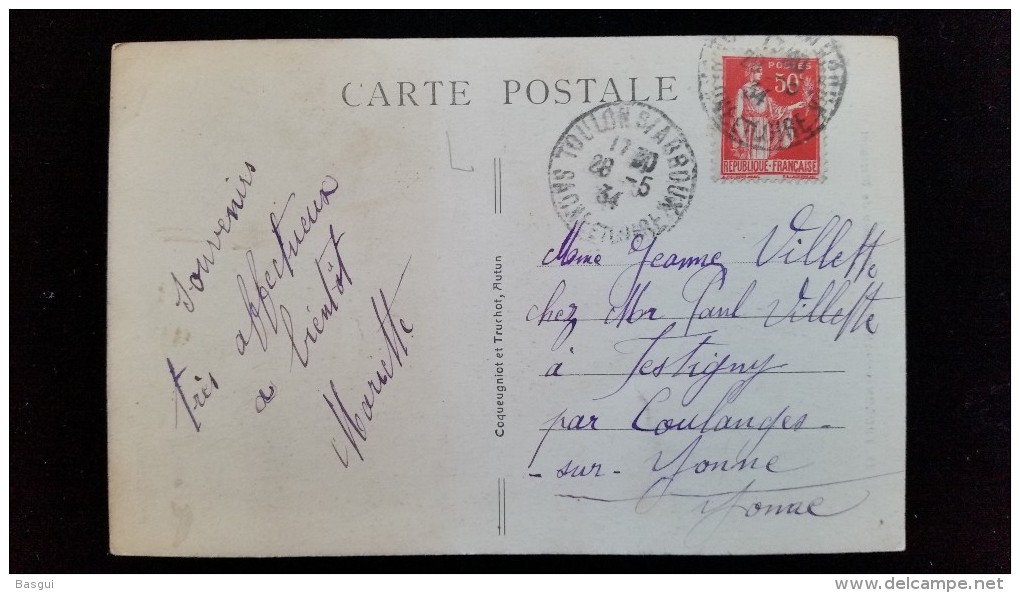 CARTE POSTALE
POSTES
50c
REPUBLIQUE-FRANÇAISE
TOULON S/ARROUX
17 30
28 -5
34
SAONE ET LOIRE
Souvenirs
très affectueux
a bientôt
Mariette
Coqueugniot et Truchot, Autun
Mme Jeanne Villette
chez Mr Paul Villette
à Festigny
par Coulanges-
-sur-Yonne
Yonne
Basgui
http://www.delcampe.net